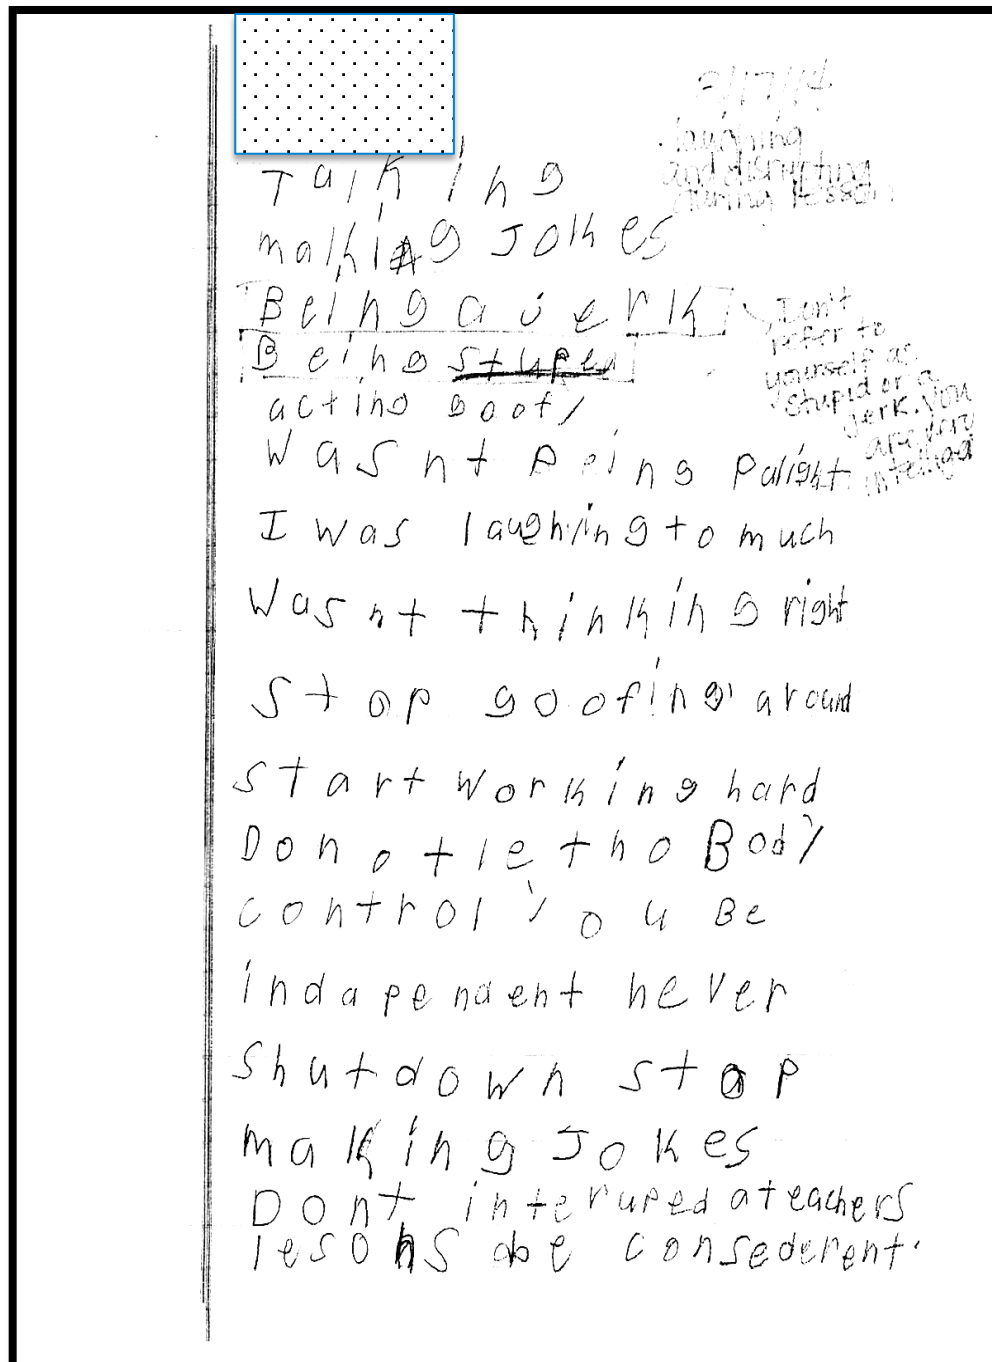 laughing
and disrupting
during lesson
Talking
making Jokes
Being a jerk
Being stuped
acting goofy
Wasnt Being Palight
I was laughing to much
Wasnt thinking right
Stop goofing around
Start Working hard
Do not let the Body
control You Be
indapendent never
Shutdown stop
making Jokes
Dont interuped a teachers
lesons be consederent.
Don't
refer to
yourself as
stupid or a
jerk. You
are very